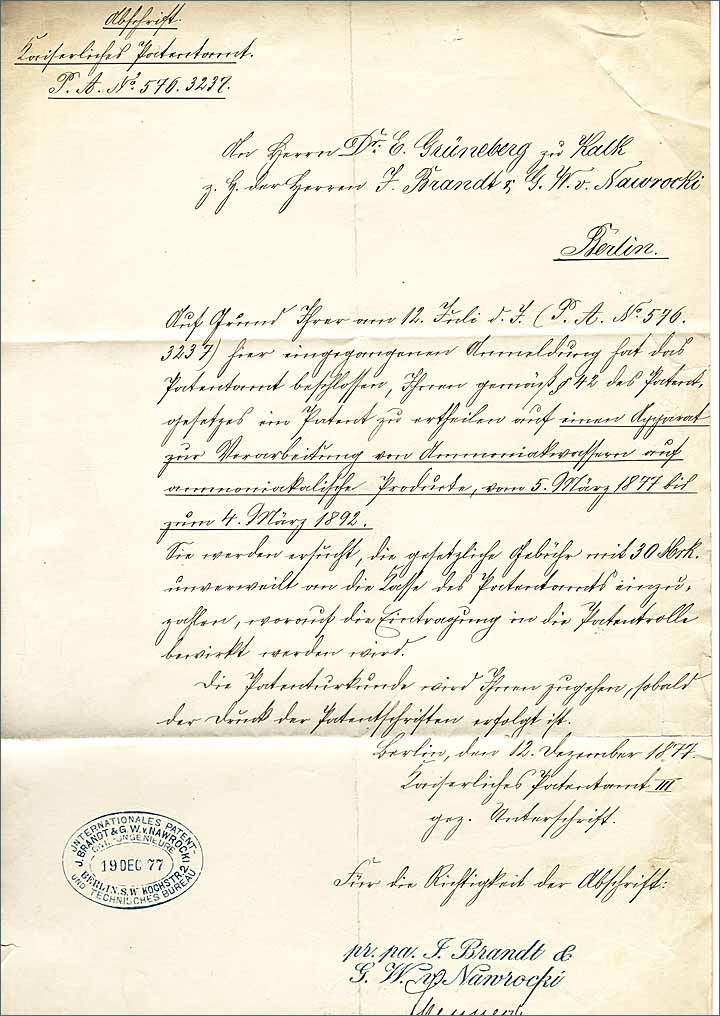 Abschrift.
Kaiserliches Patentamt.
P. A. No 576. 3237.
An Herrn Dr. C. Grüneberg zu Kalk
z. H. der Herren J. Brandt & G. W. v. Nawrocki
Berlin.
Auf Grund Ihrer am 12. Juli d. J. (P. A. No. 576.
3237) hier eingegangenen Anmeldung hat das
Patentamt beschlossen, Ihnen gemäß § 42 des Patent-
gesetzes ein Patent zu ertheilen auf einen Apparat
zur Verarbeitung von Ammoniakwassern auf
ammoniakalische Producte, vom 5. März 1877 bis
zum 4. März 1892.
Sie werden ersucht, die gesetzliche Gebühr mit 30 Mrk.
unverweilt an die Kasse des Patentamts einzu-
zahlen, worauf die Eintragung in die Patentrolle
bewirkt werden wird.
Die Patenturkunde wird Ihnen zugehen, sobald
der Druck der Patentschriften erfolgt ist.
Berlin, den 12. Dezember 1877.
Kaiserliches Patentamt III
gez. Unterschrift.
INTERNATIONALES PATENT-
UND TECHNISCHES BUREAU
J. BRANDT & G. W. v. NAWROCKI
CIVIL-INGENIEURE
19 DEC 77
BERLIN. S.W. KOCHSTR. 2.
Für die Richtigkeit der Abschrift:
pr. pa. J. Brandt &
G. W. v. Nawrocki